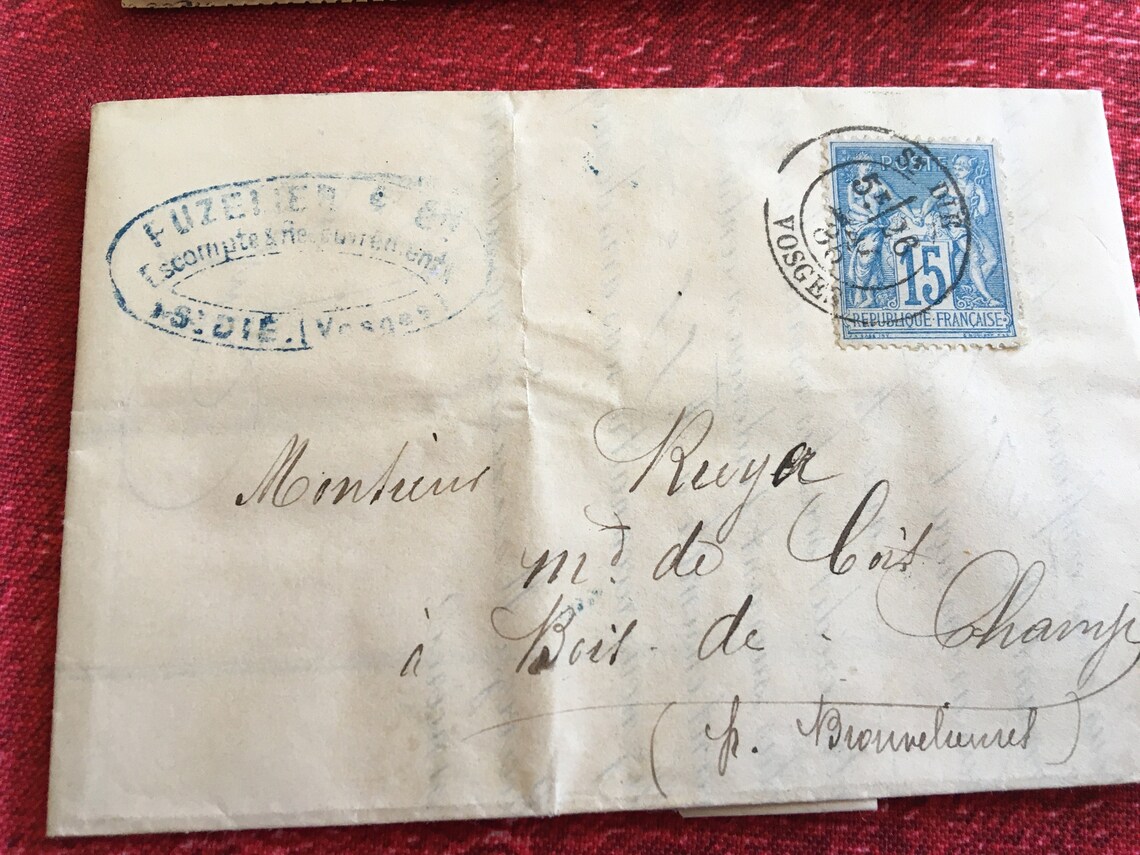 FUZELIER & Cie
Escompte & Recouvrements
St DIÉ. (Vosges)
POSTE
15
REPUBLIQUE FRANÇAISE
St DIÉ
5E / 26
VOSGES
Monsieur Ruya
md de Bois
à Bois de Champ
(p. Brouvelieures)